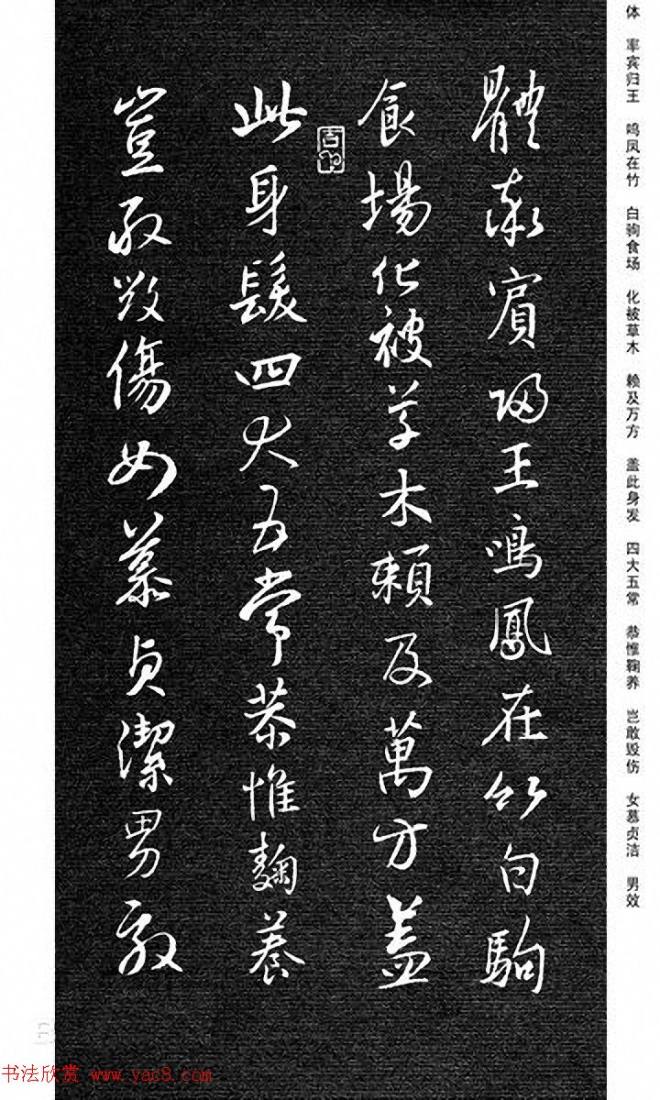 體率賓歸王鳴鳳在竹白駒
食場化被草木賴及萬方蓋
此身髮四大五常恭惟鞠養
豈敢毀傷女慕貞潔男效
体 率宾归王 鸣凤在竹 白驹食场 化被草木 赖及万方 盖此身发 四大五常 恭惟鞠养 岂敢毁伤 女慕贞洁 男效
书法欣赏 www.yac8.com